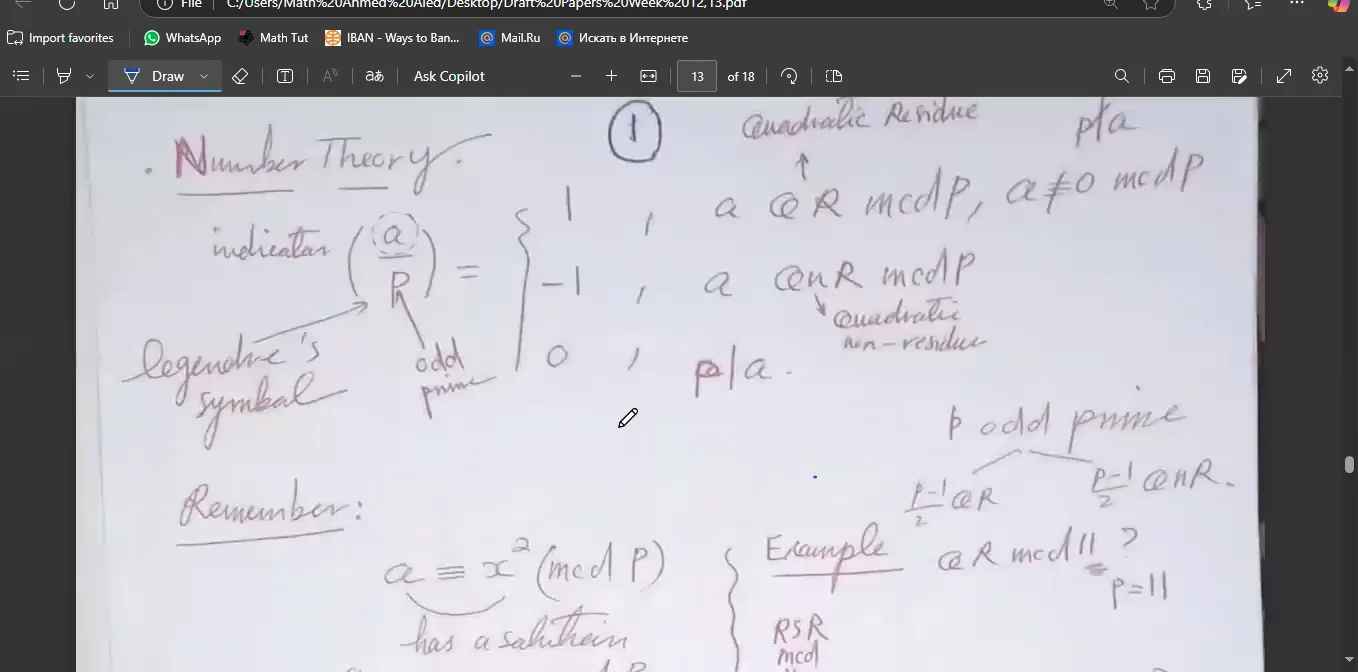 File C:/Users/Math%20Ahmed%20Aled/Desktop/Draft%20Papers%20Week%2012,13.pdf
Import favorites WhatsApp Math Tut IBAN - Ways to Ban... Mail.Ru Искать в Интернете
Draw T aあ Ask Copilot 13 of 18
1
Quadratic Residue p∤a
. Number Theory.
1 , a QR mod P, a ≢ 0 mod P
indicator (a/P) =
-1 , a QnR mod P
Quadratic
non-residue
legendre's
symbol
odd
prime
0 , p|a.
p odd prime
p-1/2 QR p-1/2 QnR.
Remember:
a ≡ x² (mod P)
has a solution
Example QR mod 11 ?
p=11
RSR
mod